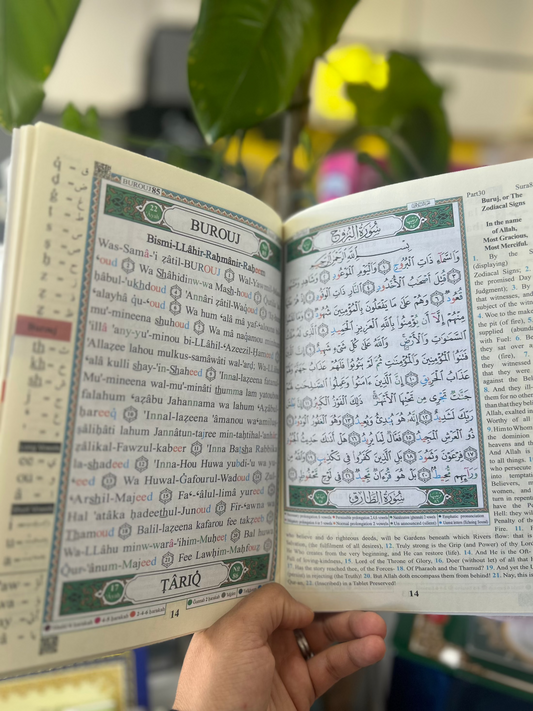 BUROUJ 85
BUROUJ
Bismi-LLâhir-Raḥmânir-Raḥeem
Was-Samâ-'i zâtil-BUROUJ ① Wal-Yaw
'oud ② Wa Shâhidinw-wa Mash-houd ③
ḥâbul-'ukhdoud ④ 'Annâri zâtil-Waqoud ⑤
'alayhâ qu-'oud ⑥ Wa hum 'alâ mâ yaf-'a
mu'-mineena shuhoud ⑦ Wa mâ naqamou
'illâ 'any-yu'-minou bi-LLâhil-'Azeezil-Ḥameed
'Allazee lahou mulkus-samâwâti wal-'arḍ; Wa-LLâhu
'alâ kulli shay-'in-Shaheed ⑨ 'Innal-lazeena fatanul
Mu'-mineena wal-mu'-minâti thumma lam yatoubou
falahum 'azâbu Jahannama wa lahum 'Azâbul
ḥareeq ⑩ 'Innal-lazeena 'âmanou wa 'amiluṣ
ṣâliḥâti lahum Jannâtun-tajree min-taḥtihal-'anhâr
zâlikal-Fawzul-kabeer ⑪ 'Inna Baṭsha Rabbika
la-shadeed ⑫ 'Inna-Hou Huwa yubdi-'u wa yu
⑬ Wa Huwal-Ġafourul-Wadoud ⑭ Zul
'Arshil-Majeed ⑮ Fa'-'âlul-limâ yureed ⑯
Hal 'atâka ḥadeethul-Junoud ⑰ Fir-'awna wa
Thamoud ⑱ Balil-lazeena kafarou fee takzeeb ⑲
Wa-LLâhu minw-warâ-'ihim-Muḥeeṭ ⑳ Bal huwa
Qur-'ânum-Majeed ㉑ Fee Lawḥim-Maḥfouẓ ㉒
ṬÂRIQ
14
سُورَةُ الْبُرُوجِ
بِسْمِ اللَّهِ الرَّحْمَٰنِ الرَّحِيمِ
وَالسَّمَاءِ ذَاتِ الْبُرُوجِ ① وَالْيَوْمِ الْمَوْعُودِ ② وَشَاهِدٍ
وَمَشْهُودٍ ③ قُتِلَ أَصْحَابُ الْأُخْدُودِ ④ النَّارِ ذَاتِ الْوَقُودِ ⑤ إِذْ هُمْ عَلَيْهَا
قُعُودٌ ⑥ وَهُمْ عَلَىٰ مَا يَفْعَلُونَ بِالْمُؤْمِنِينَ شُهُودٌ ⑦ وَمَا نَقَمُوا
مِنْهُمْ إِلَّا أَن يُؤْمِنُوا بِاللَّهِ الْعَزِيزِ الْحَمِيدِ ⑧ الَّذِي لَهُ مُلْكُ
السَّمَاوَاتِ وَالْأَرْضِ وَاللَّهُ عَلَىٰ كُلِّ شَيْءٍ شَهِيدٌ ⑨ إِنَّ الَّذِينَ
فَتَنُوا الْمُؤْمِنِينَ وَالْمُؤْمِنَاتِ ثُمَّ لَمْ يَتُوبُوا فَلَهُمْ عَذَابُ جَهَنَّمَ وَلَهُمْ
عَذَابُ الْحَرِيقِ ⑩ إِنَّ الَّذِينَ آمَنُوا وَعَمِلُوا الصَّالِحَاتِ لَهُمْ
جَنَّاتٌ تَجْرِي مِن تَحْتِهَا الْأَنْهَارُ ذَٰلِكَ الْفَوْزُ الْكَبِيرُ ⑪ إِنَّ بَطْشَ
رَبِّكَ لَشَدِيدٌ ⑫ إِنَّهُ هُوَ يُبْدِئُ وَيُعِيدُ ⑬ وَهُوَ الْغَفُورُ الْوَدُودُ ⑭
ذُو الْعَرْشِ الْمَجِيدُ ⑮ فَعَّالٌ لِّمَا يُرِيدُ ⑯ هَلْ أَتَاكَ حَدِيثُ الْجُنُودِ
⑰ فِرْعَوْنَ وَثَمُودَ ⑱ بَلِ الَّذِينَ كَفَرُوا فِي تَكْذِيبٍ ⑲ وَاللَّهُ مِن
وَرَائِهِم مُّحِيطٌ ⑳ بَلْ هُوَ قُرْآنٌ مَّجِيدٌ ㉑ فِي لَوْحٍ مَّحْفُوظٍ ㉒
سُورَةُ الطَّارِقِ
Part30 Sura8
Buruj, or The
Zodiacal Signs
In the name
of Allah,
Most Gracious,
Most Merciful.
1. By the S
(displaying)
Zodiacal Signs; 2.
the promised Day
Judgment); 3. By
that witnesses, and
subject of the witne
4. Woe to the make
the pit (of fire), 5.
supplied (abunda
with Fuel: 6. Be
they sat over a
the (fire), 7.
they witnessed
that they were
against the Bel
8. And they ill-
them for no other
than that they beli
Allah, exalted in
Worthy of all
9. Him to Whom
the dominion
heavens and th
And Allah is
to all things. 1
who persecute
into temptatio
Believers, m
women, and
turn in repenta
have the P
Hell: they wil
Penalty of the
Fire. 11. F
who believe and do righteous deeds, will be Gardens beneath which Rivers flow: that is
Salvation, (the fulfilment of all desires), 12. Truly strong is the Grip (and Power) of thy Lord
13. It is He Who creates from the very beginning, and He can restore (life). 14. And He is the Oft-
Full of loving-kindness, 15. Lord of the Throne of Glory, 16. Doer (without let) of all that
17. Has the story reached thee, of the Forces- 18. Of Pharaoh and the Thamud? 19. And yet the U
(persist) in rejecting (the Truth)! 20. But Allah doth encompass them from behind! 21. Nay, this is
Qur-an, 22. (Inscribed) in a Tablet Preserved!
14